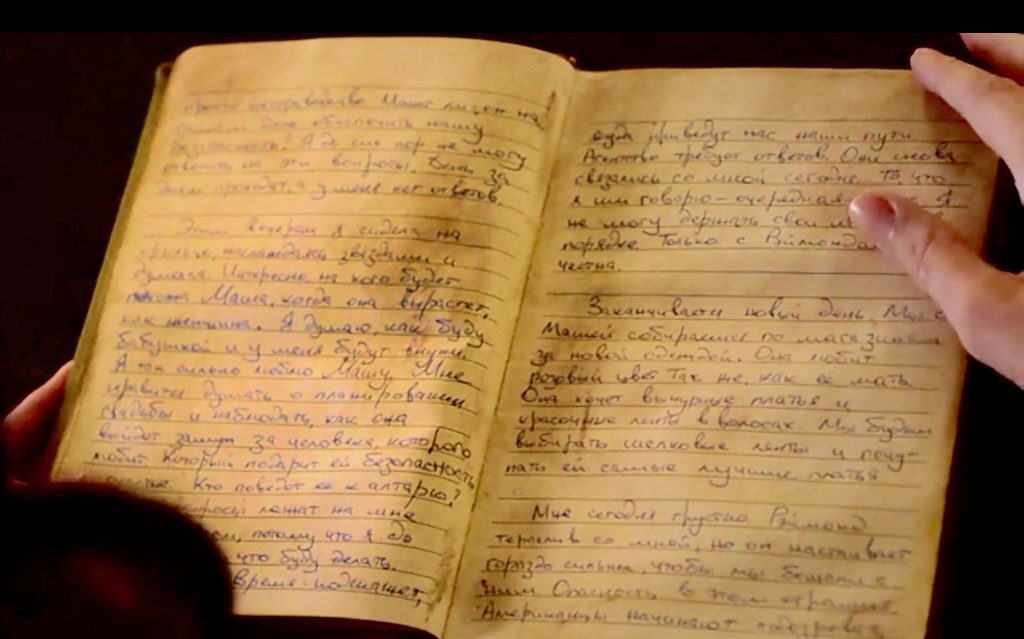 просто несправедливо. Может ли он на
самом деле обеспечить нашу
безопасность? Я до сих пор не могу
ответить на эти вопросы. День за
днем проходят, а у меня нет ответов.
Этим вечером я сидела на
крыльце, наслаждаясь звёздами и
думала. Интересно, на кого будет
похожа Маша, когда она вырастет,
как женщина. Я думаю, как буду
бабушкой и у меня будут внуки.
Я так сильно люблю Машу. Мне
нравится думать о планировании
свадьбы и наблюдать, как она
выйдет замуж за человека, которого
любит. Который подарит ей безопасность
Кто поведет ее к алтарю?
вопросы лежат на мне
потому что я до
что буду делать.
Время подскажет,
куда приведут нас наши пути
Агентство требует ответов. Они снова
связались со мной сегодня. То, что
я им говорю – очередная Я
не могу держать свои
порядке. Только с Рэймондом
честна.
Заканчивается новый день. Мы с
Машей собираемся по магазинам
за новой одеждой. Она любит
розовый цвет так же, как её мать.
Она хочет вычурные платья и
красочные ленты в волосах. Мы будем
выбирать шелковые ленты и поку-
пать ей самые лучшие платья
Мне сегодня грустно. Рэймонд
терпелив со мной, но он настаивает
гораздо сильнее, чтобы мы бежали с
ним. Опасности в этом отрицает.
Американцы начинают подозревать